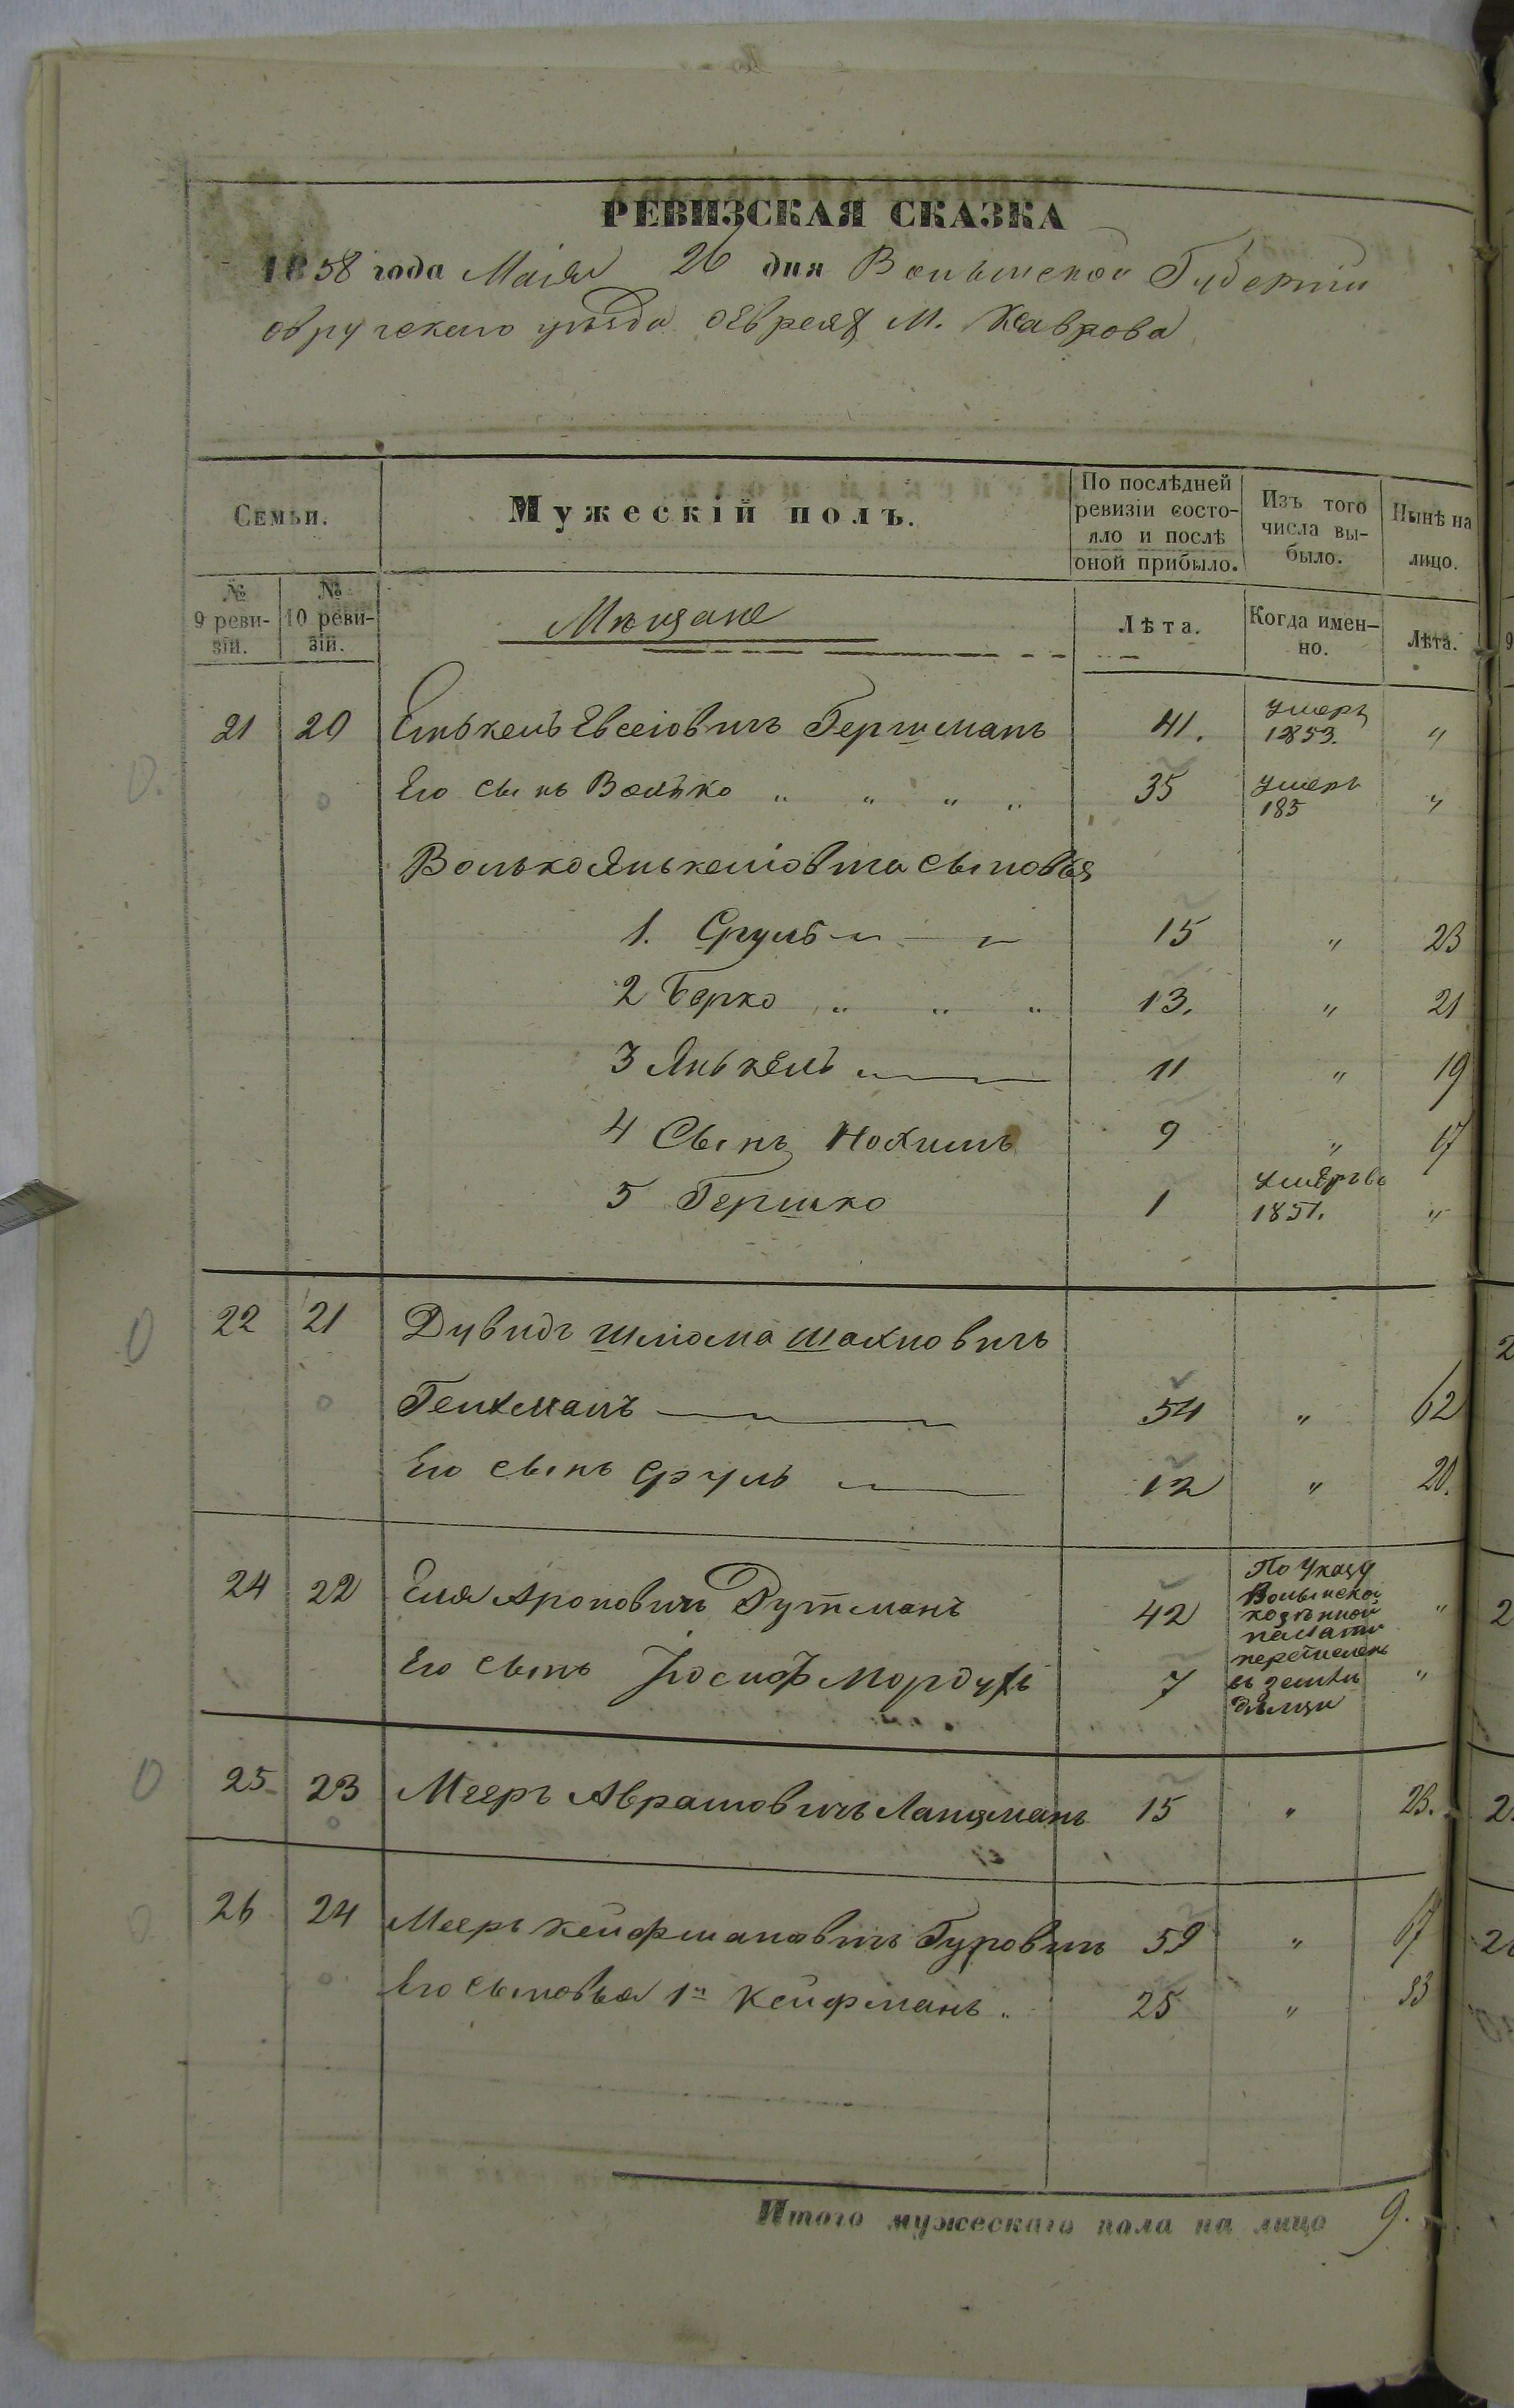 РЕВИЗСКАЯ СКАЗКА
1858 года Маія 26 дня Волынской Губерніи
овручскаго уѣзда евреяхъ М. Хаврова
Семьи.
Мужескій полъ.
По послѣдней ревизіи состояло и послѣ оной прибыло.
Изъ того числа выбыло.
Нынѣ на лицо.
№ 9 ревизіи.
№ 10 ревизіи.
Мѣщане
Лѣта.
Когда именно.
Лѣта.
21 20 Янькель Евсеіовичъ Гершманъ 41. умеръ 1853. "
Его сынъ Волько " " " " 35 умеръ 185 "
Волько Янькеліовича сыновья
1. Сруль 15 " 23
2 Берко " " " 13. " 21
3 Янькель 11 " 19
4 Сынъ Нохимъ 9 " 17
5 Гершко 1 умеръ въ 1851. "
22 21 Дувидъ шліома шахновичъ
Гехманъ 54 " 62
Его сынъ Сруль 12 " 20.
24 22 Еля Ароновичъ Рутманъ 42 По указу "
Волынской
козѣнной
палаты
Его сынъ Іосиф Мордухъ 7 перечислены "
въ земле
дѣльци
25 23 Мееръ Аврамовичъ Ланцманъ 15 " 23.
26 24 Мееръ кейфмановичъ Гуровичъ 59 " 67
Его сыновья 1й Кейфманъ " 25 " 33
Итого мужескаго пола на лицо 9.